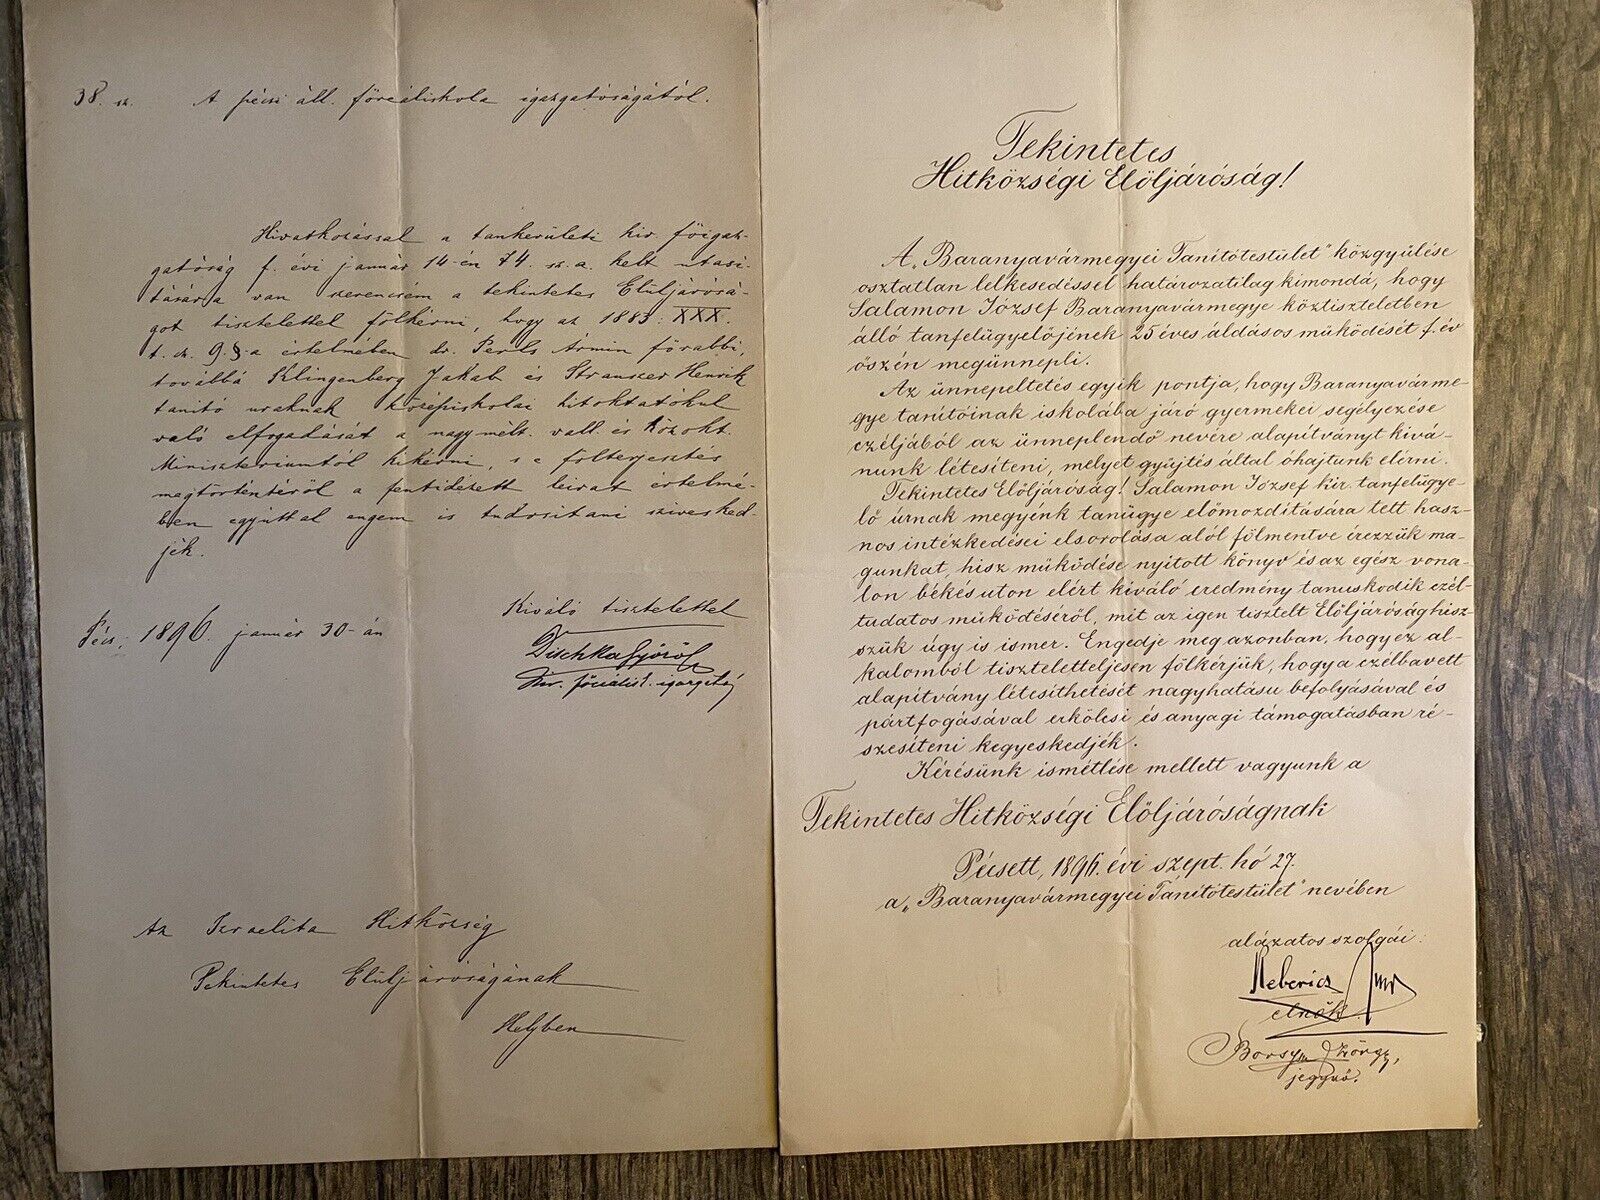 38. sz. A pécsi áll. főreáliskola igazgatóságától.
Hivatkozással a tankerületi kir. főigaz-
gatóság f. évi január 14-én 74. sz. a. kelt utasi-
tására van szerencsém a tekintetes Elüljárósá-
got tisztelettel fölkérni, hogy az 1883. XXX.
t. cz. 9. §-a értelmében dr. Perls Ármin főrabbi,
továbbá Klingenberg Jakab és Strausser Henrik
tanító uraknak középiskolai hitoktatókul
való elfogadását a nagymélt. vall. és közokt.
Minisztériumtól kikérni, s e fölterjesztés
megtörténtéről a fentidézett leirat értelmé-
ben egyúttal engem is tudositani sziveskéd-
jék.
Kiváló tisztelettel
Pécs, 1896. január 30-án
Dischka Győző
főreálisk. igazgató
Az Izraelita Hitközség
Tekintetes Elüljáróságának
Helyben
Tekintetes
Hitközségi Elöljáróság!
A „Baranyavármegyei Tanítótestület" közgyűlése
osztatlan lelkesedéssel határozatilag kimondá, hogy
Salamon József Baranyavármegye köztiszteletben
álló tanfelügyelőjének 25 éves áldásos működését f. év
őszén megünnepli.
Az ünnepeltetés egyik pontja, hogy Baranyavárme-
gye tanítóinak iskolába járó gyermekei segélyezése
czéljából az ünneplendő nevére alapítványt kivá-
nunk létesíteni, melyet gyűjtés által óhajtunk elérni.
Tekintetes Elöljáróság! Salamon József kir. tanfelügye-
lő úrnak megyénk tanügye előmozdítására tett hasz-
nos intézkedései elsorolása alól fölmentve érezzük ma-
gunkat, hisz működése nyitott könyv és az egész vona-
lon békés uton elért kiváló eredmény tanuskodik czél-
tudatos működéséről, mit az igen tisztelt Elöljáróság hisz-
szük úgy is ismer. Engedje meg azonban, hogy ez al-
kalomból tiszteletteljesen fölkérjük, hogy a czélbavett
alapítvány létesíthetését nagyhatásu befolyásával és
pártfogásával erkölcsi és anyagi támogatásban ré-
szesíteni kegyeskedjék.
Kérésünk ismétlése mellett vagyunk a
Tekintetes Hitközségi Elöljáróságnak
Pécsett, 1896. évi szept. hó 27.
a „Baranyavármegyei Tanítótestület" nevében
alázatos szolgái:
elnök.
György,
jegyző.